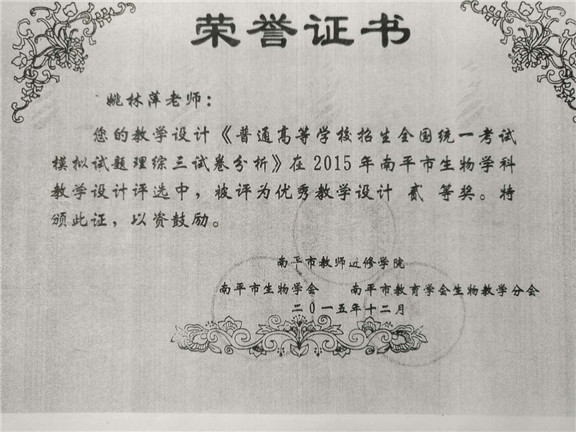 荣誉证书
姚林萍老师：
您的教学设计《普通高等学校招生全国统一考试
模拟试题理综三试卷分析》在2015年南平市生物学科
教学设计评选中，被评为优秀教学设计 贰 等奖。特
颁此证，以资鼓励。
南平市教师进修学院
南平市生物学会 南平市教育学会生物教学分会
二〇一五年十二月